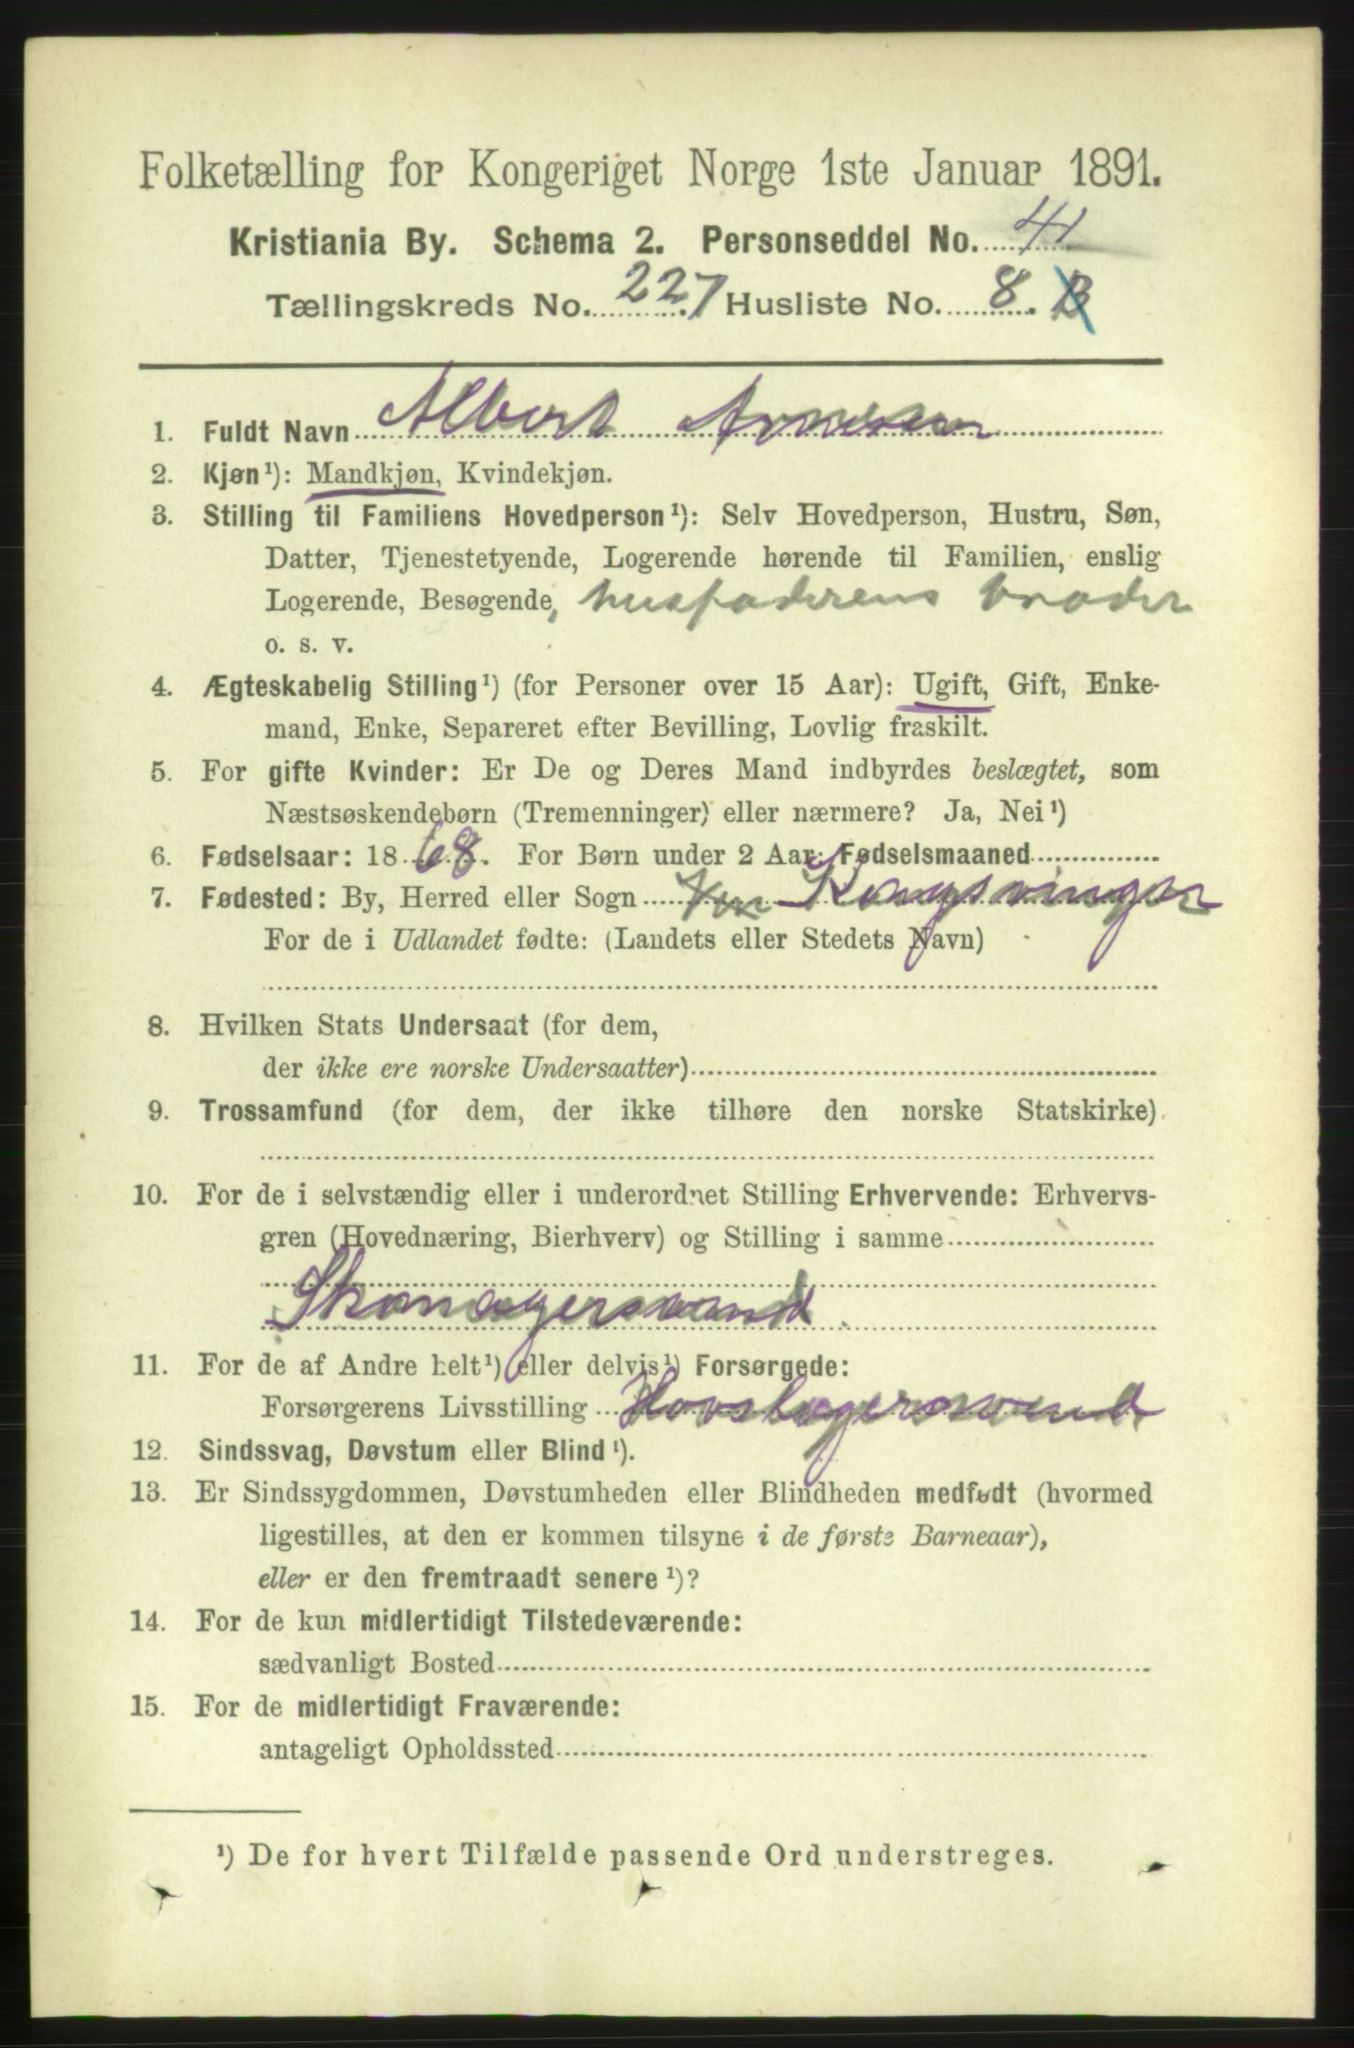 Folketælling for Kongeriget Norge 1ste Januar 1891.
Kristiania By. Schema 2. Personseddel No. 41
Tællingskreds No. 227 Husliste No. 8. B
1. Fuldt Navn Albert Arnesen
2. Kjøn¹): Mandkjøn, Kvindekjøn.
3. Stilling til Familiens Hovedperson¹): Selv Hovedperson, Hustru, Søn,
Datter, Tjenestetyende, Logerende hørende til Familien, enslig
Logerende, Besøgende, husfaderens broder
o. s. v.
4. Ægteskabelig Stilling¹) (for Personer over 15 Aar): Ugift, Gift, Enke-
mand, Enke, Separeret efter Bevilling, Lovlig fraskilt.
5. For gifte Kvinder: Er De og Deres Mand indbyrdes beslægtet, som
Næstsøskendebørn (Tremenninger) eller nærmere? Ja, Nei¹)
6. Fødselsaar: 1868. For Børn under 2 Aar: Fødselsmaaned
7. Fødested: By, Herred eller Sogn Kongsvinger
For de i Udlandet fødte: (Landets eller Stedets Navn)
8. Hvilken Stats Undersaat (for dem,
der ikke ere norske Undersaatter)
9. Trossamfund (for dem, der ikke tilhøre den norske Statskirke)
10. For de i selvstændig eller i underordnet Stilling Erhvervende: Erhvervs-
gren (Hovednæring, Bierhverv) og Stilling i samme
Skomagersvend
11. For de af Andre helt¹) eller delvis¹) Forsørgede:
Forsørgerens Livsstilling
12. Sindssvag, Døvstum eller Blind¹).
13. Er Sindssygdommen, Døvstumheden eller Blindheden medfødt (hvormed
ligestilles, at den er kommen tilsyne i de første Barneaar),
eller er den fremtraadt senere¹)?
14. For de kun midlertidigt Tilstedeværende:
sædvanligt Bosted
15. For de midlertidigt Fraværende:
antageligt Opholdssted
¹) De for hvert Tilfælde passende Ord understreges.